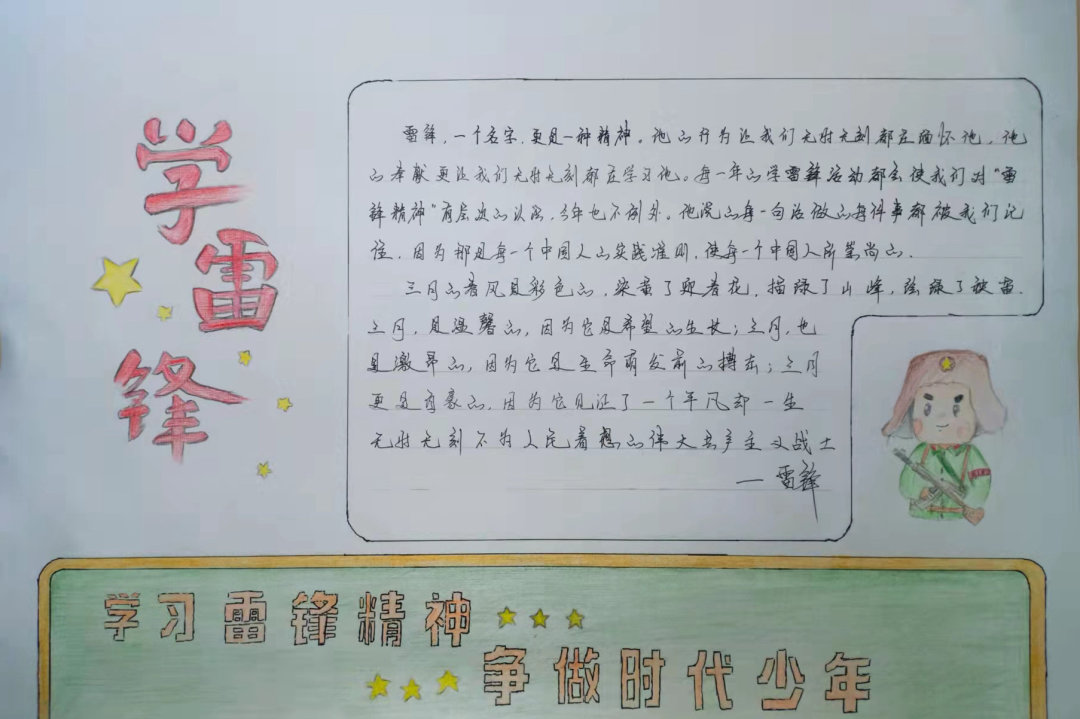 学
雷
锋
雷锋，一个名字，更是一种精神。他的行为让我们无时无刻都在缅怀他，他
的奉献更让我们无时无刻都在学习他。每一年的学雷锋活动都会使我们对“雷
锋精神”有层次的认识，今年也不例外。他说的每一句话做的每件事都被我们记
住，因为那是每一个中国人的实践准则，使每一个中国人所崇尚的．
三月的春风是彩色的，染黄了迎春花，描绿了山峰，
三月，是温馨的，因为它是希望的生长；三月，也
是激昂的，因为它是生命萌发前的搏击；三月
更是自豪的，因为它见证了一个平凡却一生
无时无刻不为人民着想的伟大共产主义战士
一雷锋
学习雷锋精神
争做时代少年